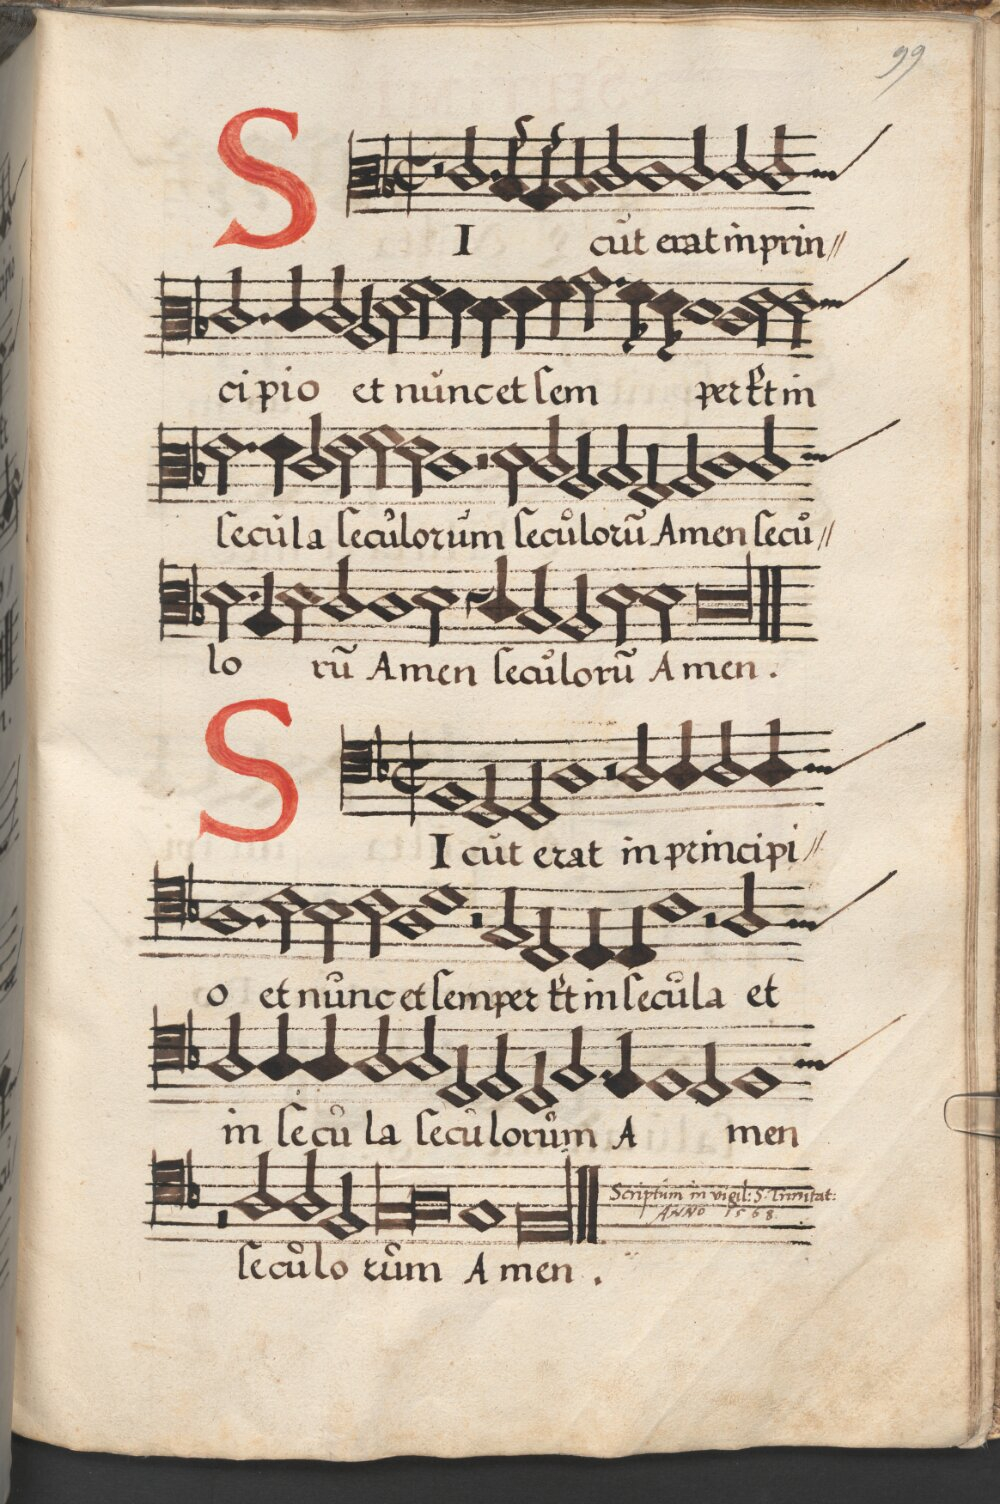 99
SIcut erat in prin//
cipio et nunc et sem per Et in
secula seculorum seculorũ Amen secu//
lo rũ Amen seculorũ Amen.
SIcut erat in principi//
o et nunc et semper Et in secula et
in secula seculorum A men
Scriptum in vigil: S. Trinitat:
ANNO 1568.
seculo rum Amen.